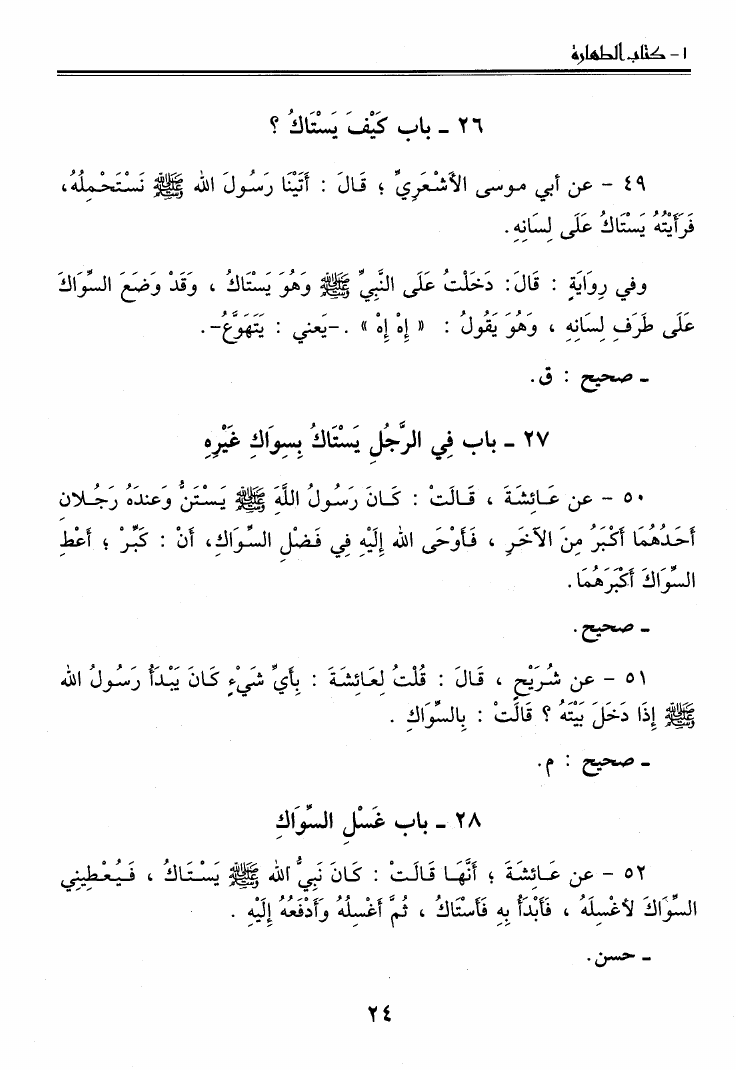 ١ - كتاب الطهارة
٢٦ ـ باب كَيْفَ يَسْتَاكُ ؟
٤٩ - عن أبي موسى الأَشْعَرِيِّ ؛ قَالَ : أَتَيْنَا رَسُولَ الله ﷺ نَسْتَحْمِلُهُ،
فَرَأَيْتُهُ يَسْتَاكُ عَلَى لِسَانِهِ.
وفي رِوَايَةٍ : قَالَ: دَخَلْتُ عَلَى النَّبِيِّ ﷺ وَهُوَ يَسْتَاكُ ، وَقَدْ وَضَعَ السِّوَاكَ
عَلَى طَرَفِ لِسَانِهِ ، وَهُوَ يَقُولُ : « إِهْ إِهْ » .-يَعني : يَتَهَوَّعُ-.
ـ صحيح : ق.
٢٧ ـ باب فِي الرَّجُلِ يَسْتَاكُ بِسِوَاكِ غَيْرِهِ
٥٠ - عن عَائِشَةَ ، قَالَتْ : كَانَ رَسُولُ اللَّهِ ﷺ يَسْتَنُّ وَعندَهُ رَجُلانِ
أَحَدُهُمَا أَكْبَرُ مِنَ الآخَرِ ، فَأَوْحَى الله إِلَيْهِ فِي فَضْلِ السِّوَاكِ، أَنْ : كَبِّرْ ؛ أَعْطِ
السِّوَاكَ أَكْبَرَهُمَا.
ـ صحيح.
٥١ - عن شُرَيْحٍ ، قَالَ : قُلْتُ لِعَائِشَةَ : بِأَيِّ شَيْءٍ كَانَ يَبْدَأُ رَسُولُ الله
ﷺ إِذَا دَخَلَ بَيْتَهُ ؟ قَالَتْ : بِالسِّوَاكِ .
ـ صحيح : م.
٢٨ ـ باب غَسْلِ السِّوَاكِ
٥٢ - عن عَائِشَةَ ؛ أَنَّهَا قَالَتْ : كَانَ نَبِيُّ الله ﷺ يَسْتَاكُ ، فَيُعْطِينِي
السِّوَاكَ لأَغْسِلَهُ ، فَأَبْدَأُ بِهِ فَأَسْتَاكُ ، ثُمَّ أَغْسِلُهُ وَأَدْفَعُهُ إِلَيْهِ .
ـ حسن.
٢٤